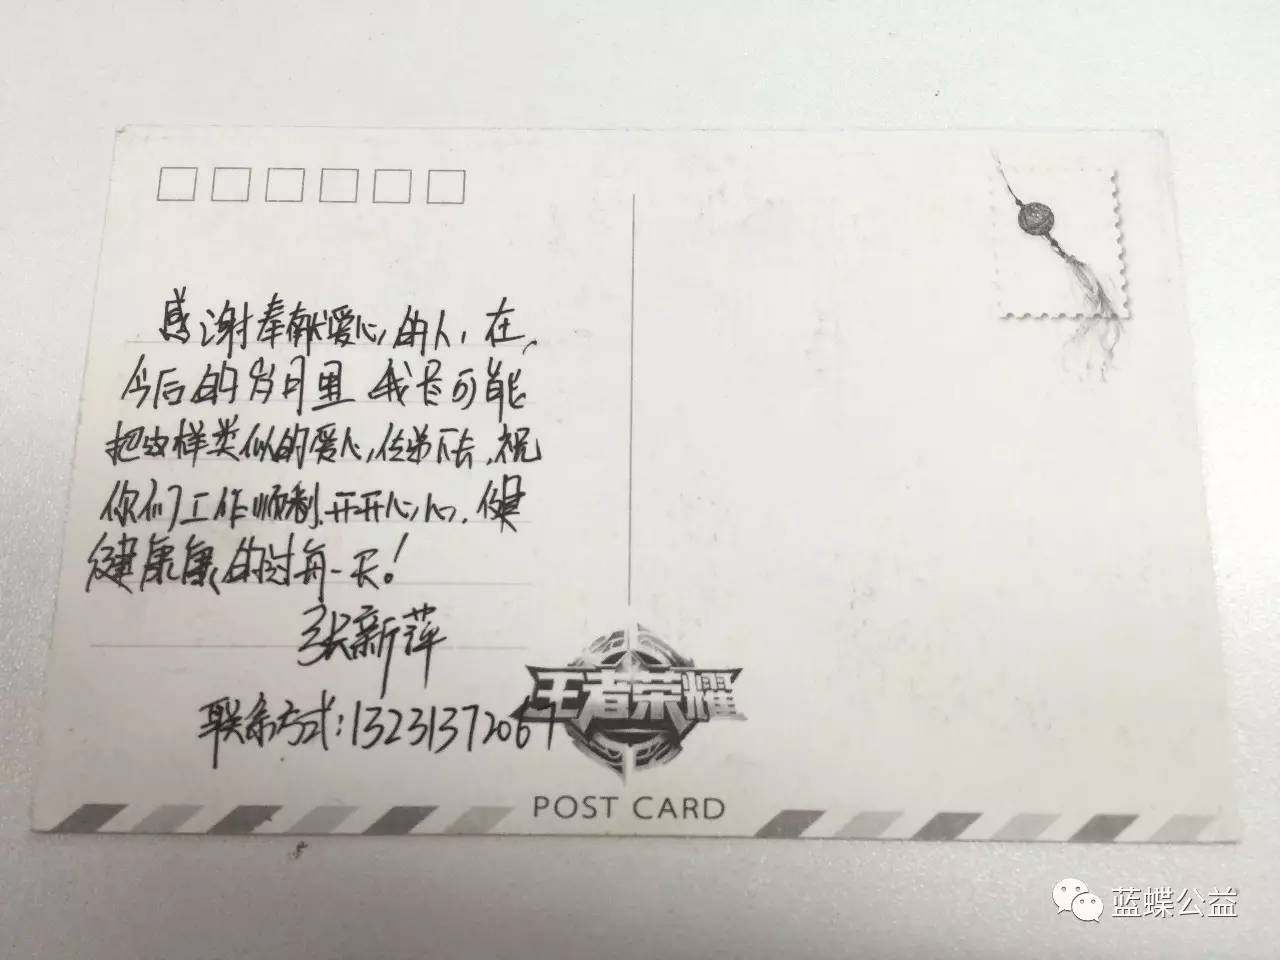 感谢奉献爱心的人,在
今后的岁月里 我尽可能
把这样类似的爱心,传递下去,祝
你们工作顺利,开开心心,健
健康康的过每一天!
张新萍
联系方式:13231372067
王者荣耀
POST CARD
蓝蝶公益